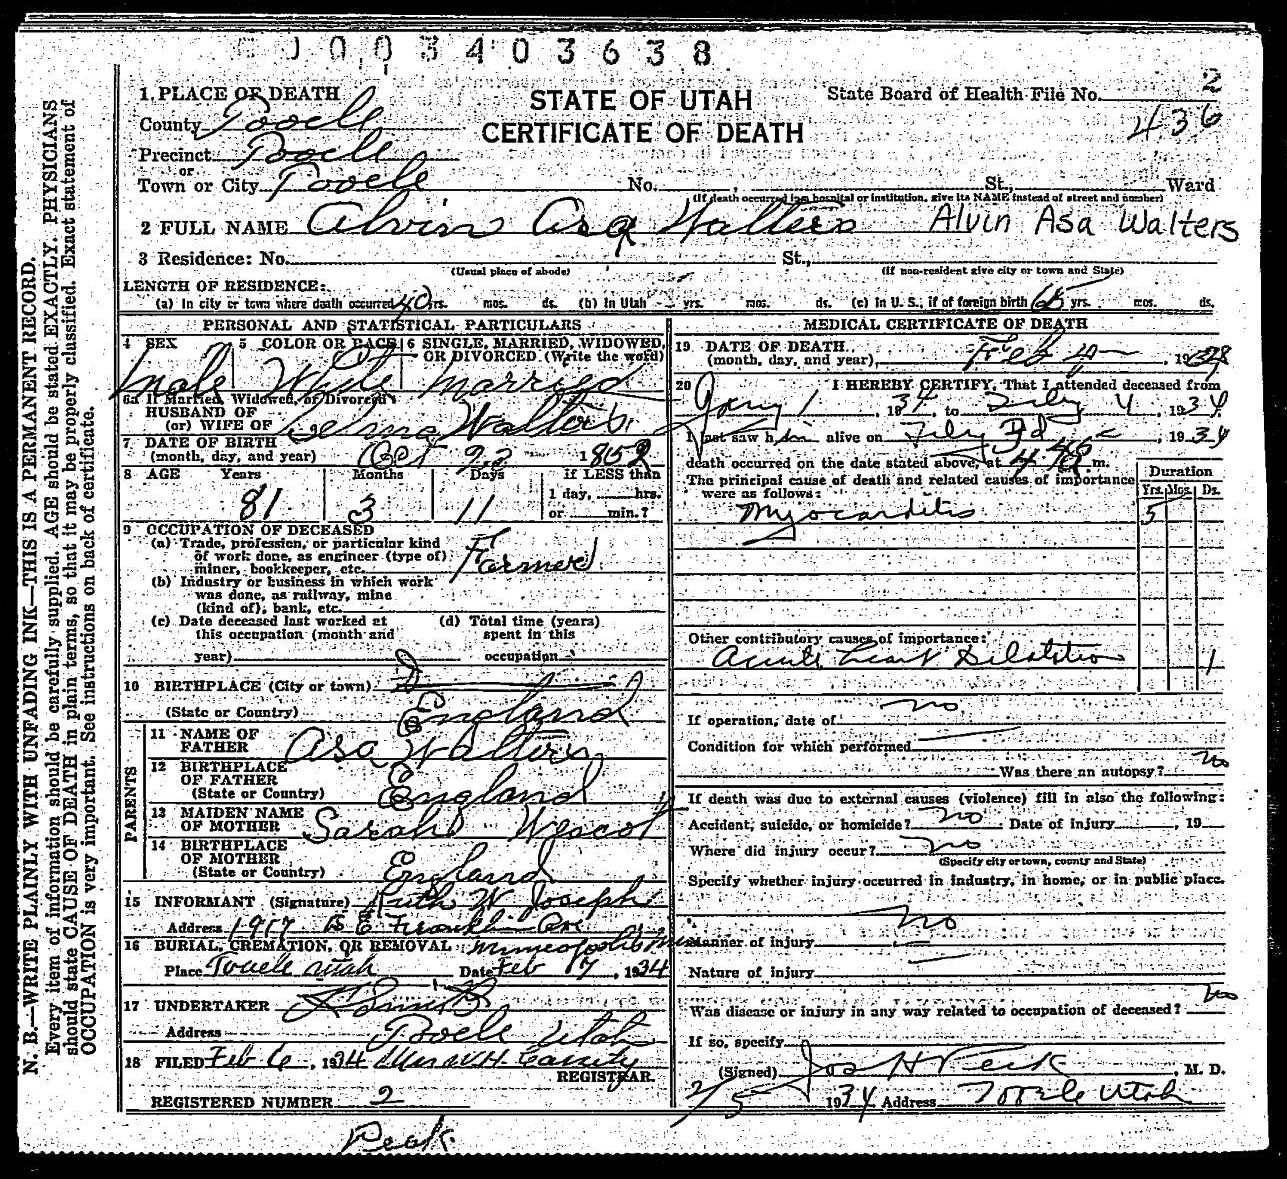 0003403638
1. PLACE OF DEATH
STATE OF UTAH
CERTIFICATE OF DEATH
State Board of Health File No. 2
436
County Tooele
Precinct Tooele
or
Town or City Tooele No. , St., Ward
(If death occurred in a hospital or institution, give its NAME instead of street and number)
2 FULL NAME Alvin Asa Walters Alvin Asa Walters
3 Residence: No. St.,
(Usual place of abode) (If non-resident give city or town and State)
LENGTH OF RESIDENCE:
(a) In city or town where death occurred 40 yrs. mos. ds. (b) In Utah yrs. mos. ds. (c) In U. S., if of foreign birth 65 yrs. mos. ds.
PERSONAL AND STATISTICAL PARTICULARS
4 SEX 5 COLOR OR RACE 6 SINGLE, MARRIED, WIDOWED, OR DIVORCED. (Write the word)
male White married
6a If Married, Widowed, or Divorced
HUSBAND OF
(or) WIFE OF Selma Walters
7 DATE OF BIRTH
(month, day, and year) Oct 23 1852
8 AGE Years Months Days if LESS than
1 day, hrs.
or min.?
81 3 11
9 OCCUPATION OF DECEASED
(a) Trade, profession, or particular kind
of work done, as engineer (type of)
miner, bookkeeper, etc. Farmer
(b) Industry or business in which work
was done, as railway, mine
(kind of), bank, etc.
(c) Date deceased last worked at
this occupation (month and
year)
(d) Total time (years)
spent in this
occupation
10 BIRTHPLACE (City or town)
(State or Country) England
PARENTS
11 NAME OF
FATHER Asa Walters
12 BIRTHPLACE
OF FATHER
(State or Country) England
13 MAIDEN NAME
OF MOTHER Sarah
14 BIRTHPLACE
OF MOTHER
(State or Country) England
15 INFORMANT (Signature) Ruth W Joseph
Address 1917 E Franklin Ave
Mineopolis Min
16 BURIAL, CREMATION, OR REMOVAL
Place Tooele Utah Date Feb 7, 1934
17 UNDERTAKER
Address Tooele Utah
18 FILED Feb 6, 1934 Mrs W H Cassity
REGISTRAR
REGISTERED NUMBER 2
Peak
MEDICAL CERTIFICATE OF DEATH
19 DATE OF DEATH
(month, day, and year) Feb 4, 19
20 I HEREBY CERTIFY, That I attended deceased from
Jany 1, 1934, to Feby 4, 1934
I last saw him alive on Feby 3d, 1934
death occurred on the date stated above, at m.
The principal cause of death and related causes of importance
were as follows:
Duration
Yrs. Mos. Ds.
Myocarditis 5
Other contributory causes of importance:
Acute heart Dilatation 1
If operation, date of no
Condition for which performed
Was there an autopsy? no
If death was due to external causes (violence) fill in also the following:
Accident, suicide, or homicide? no Date of injury , 19
Where did injury occur? no
(Specify city or town, county and State)
Specify whether injury occurred in industry, in home, or in public place.
no
Manner of injury
Nature of injury
Was disease or injury in any way related to occupation of deceased? no
If so, specify
(Signed) Jos H Peck, M. D.
2/5 1934 Address Tooele Utah
N. B.—WRITE PLAINLY WITH UNFADING INK—THIS IS A PERMANENT RECORD.
Every item of information should be carefully supplied. AGE should be stated EXACTLY. PHYSICIANS
should state CAUSE OF DEATH in plain terms, so that it may be properly classified. Exact statement of
OCCUPATION is very important. See instructions on back of certificate.